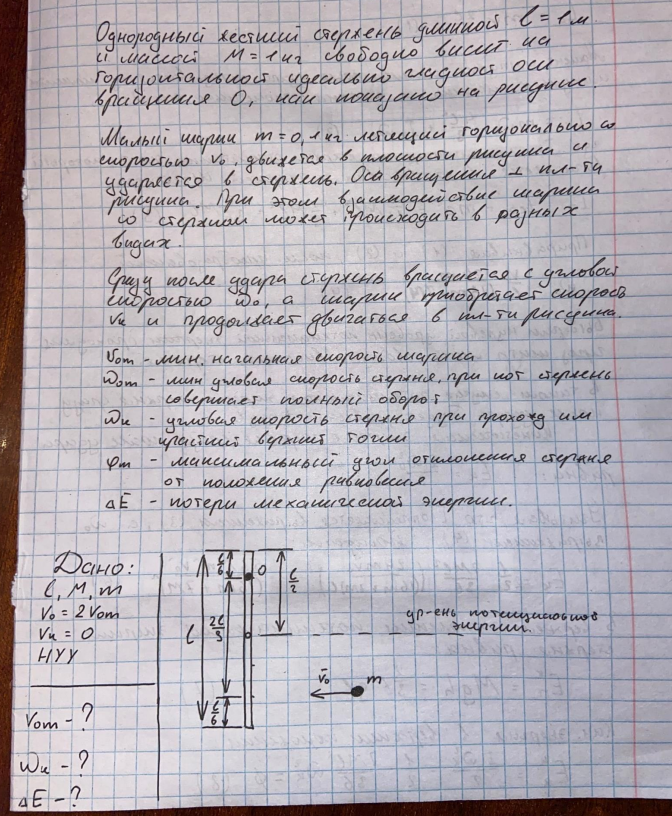 Однородный жесткий стержень длинной l = 1 м
и массой M = 1 кг свободно висит на
горизонтальной идеально гладкой оси
вращения О, как показано на рисунке.
Малый шарик m = 0,1 кг летящий горизонально со
скоростью v₀, движется в плоскости рисунка и
ударяется в стержень. Оса вращения ⊥ пл-ти
рисунка. При этом взаимодействие шарика
со стержнем может происходить в разных
видах.
Сразу после удара стержень вращается с угловой
скоростью ω₀, а шарик приобретает скорость
vк и продолжает двигаться в пл-ти рисунка.
v₀m - мин. начальная скорость шарика
ω₀m - мин угловая скорость стержня, при кот стержень
совершает полный оборот
ωк - угловая скорость стержня при проход им
крайний верхний точки
φm - максимальный угол отклонения стержня
от положения равновесия
ΔE - потери механической энергии.
Дано:
l, M, m
v₀ = 2v₀m
vк = 0
НУУ
v₀m - ?
ωк - ?
ΔE - ?
l/6
O
l/2
l
2l/3
ур-ень потенциальной
энергии.
v₀
m
l/6